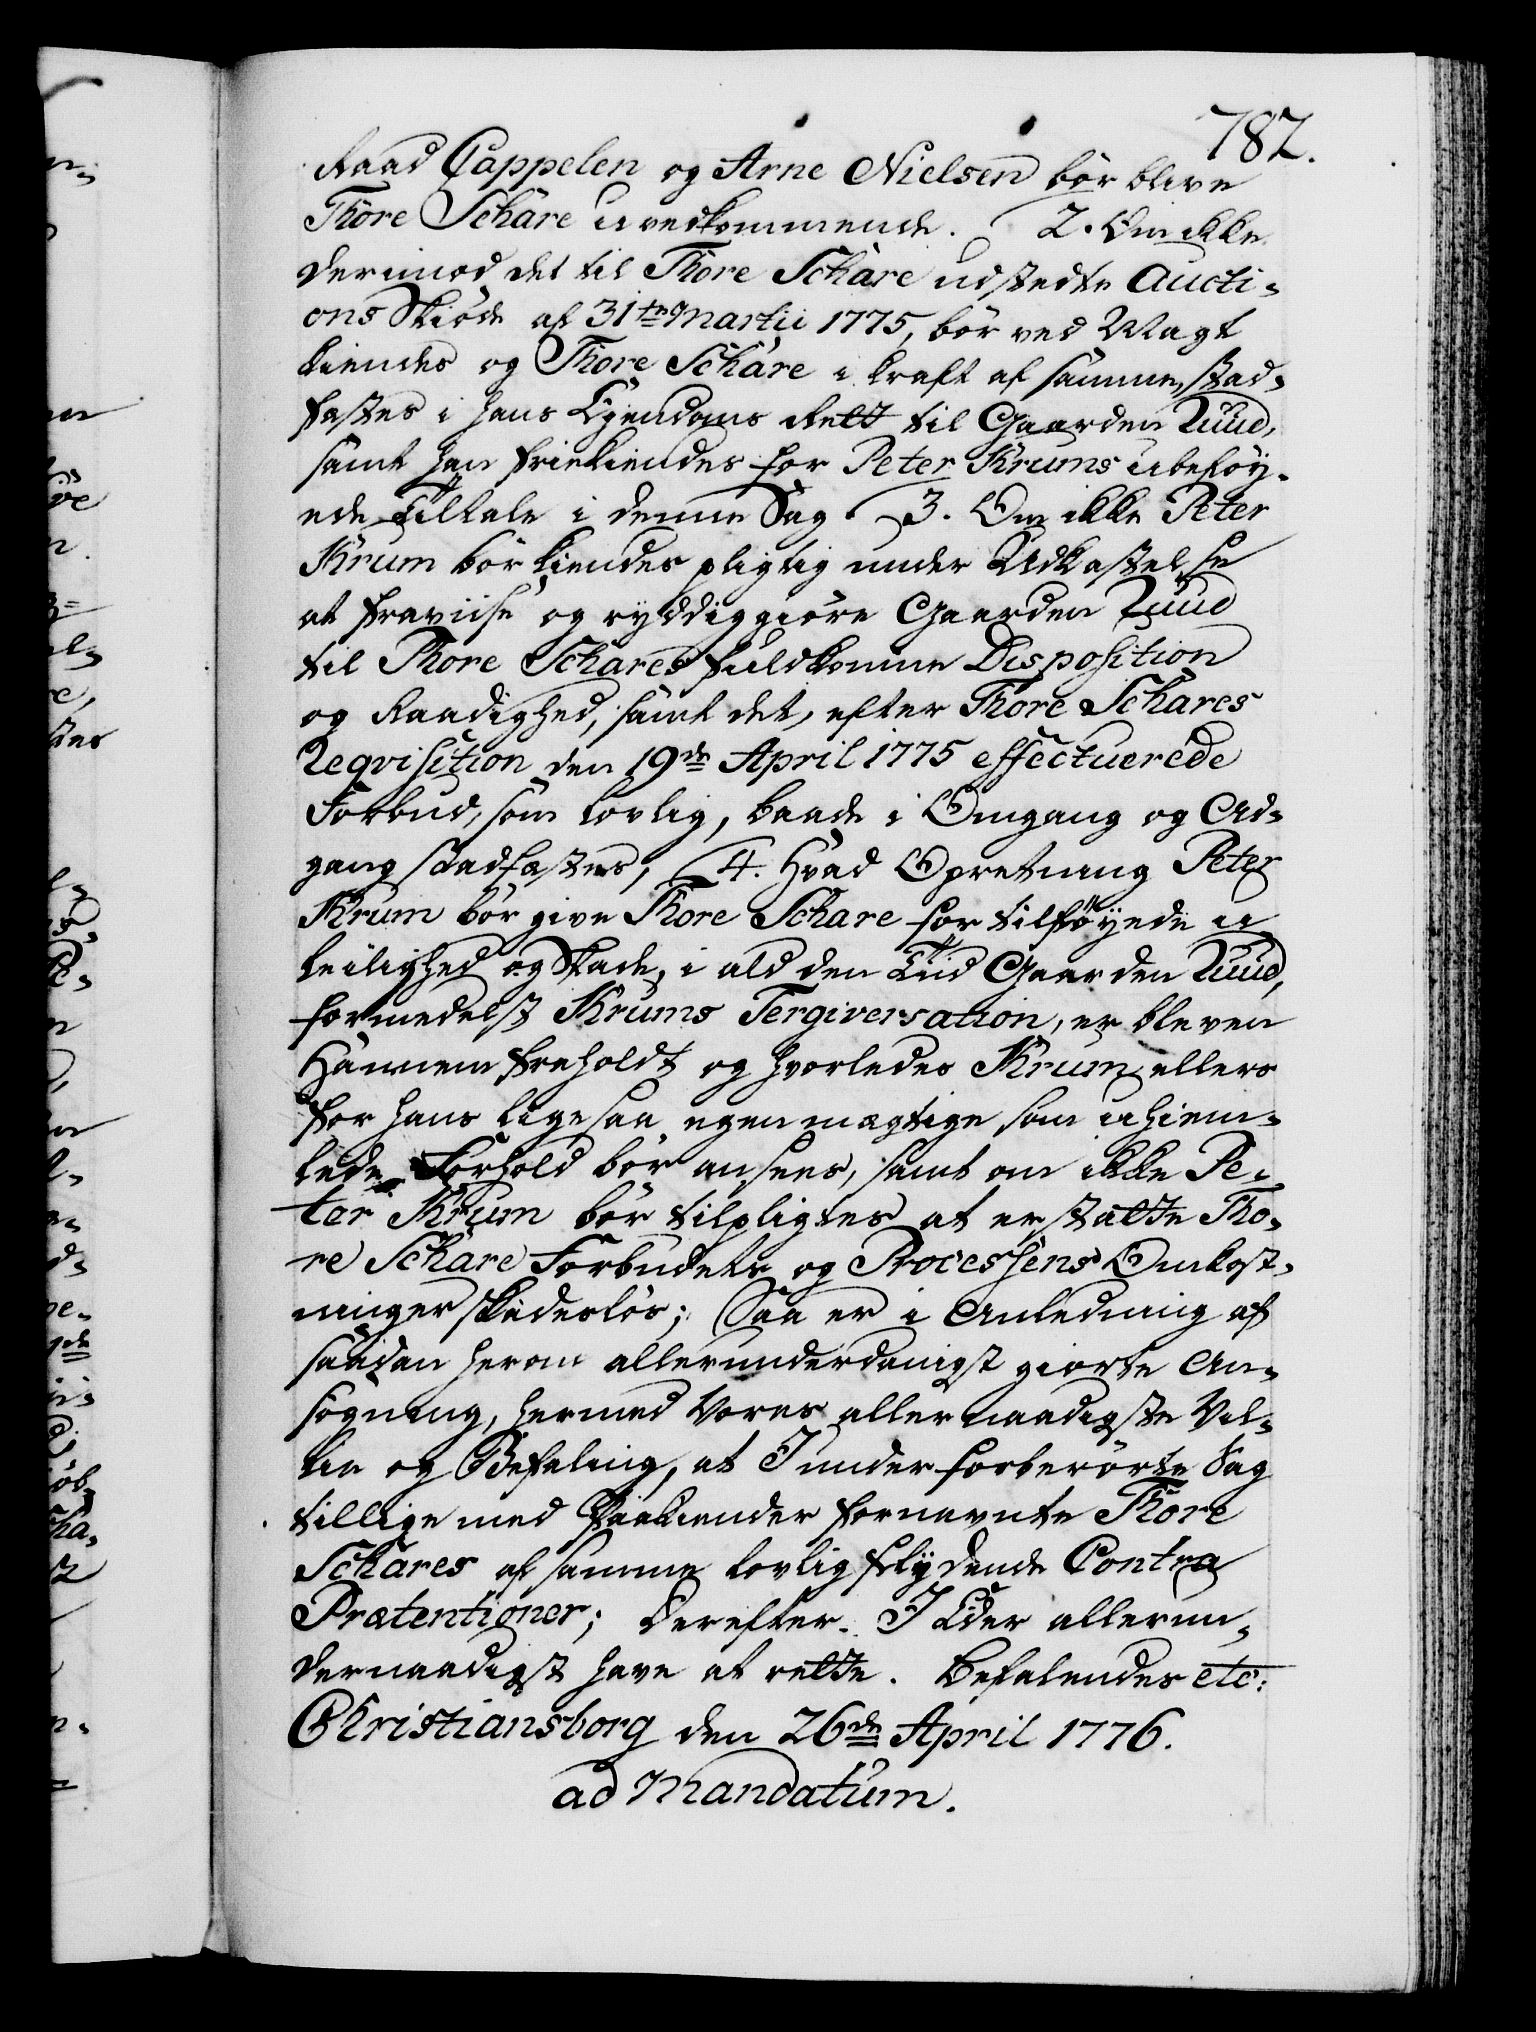 782.
Raad Cappelen og Arne Nielsen bør blive
Thore Schare uvedkommende. 2. Om ikke
derimod det til Thore Schare udstedte Aucti-
ons Skiøde af 31te Martii 1775, bør ved Magt
kiendes og Thore Schare i kraft af samme, stad-
fæstes i hans Eyendoms Rett til Gaarden Ruud,
samt han frikiendes for Peter Krums ubeføy-
ede Tiltale i denne Sag. 3. Om ikke Peter
Krum bør kiendes pligtig under Udkastelse
at fraviise og ryddiggiøre Gaarden Ruud
til Thore Schares fuldkomne Disposition
og Raadighed, samt det, efter Thore Schares
Reqvisition den 19de April 1775 effectuerede
Forbud, som lovlig, baade i Omgang og Ud-
gang stadfæstes, 4. Hvad Opretning Peter
Krum bør give Thore Schare for tilføyede u
leilighed og Skade, i ald den Tiid Gaarden Ruud,
formedelst Krums Tergiversation, er bleven
Hannem forholdt og hvorledes Krum ellers
for hans ligesaa egenmægtige som uhiem-
lede Forhold bør ansees, samt om ikke Pe-
ter Krum bør tilpligtes at erstatte Tho-
re Schare Forbudets og Processens Omkost-
ninger skadesløs; Saa er i Anledning af
saadan herom allerunderdanigst giorte An-
søgning, hermed Vores allernaadigste Vil-
lie og Befaling, at I under forberørte Sag
tillige med paakiender fornævnte Thore
Schares af samme lovlig flydende Contra
Prætentioner; Derefter I Eder allerun-
dernaadigst have at rette. Befalendes etc:
Christiansborg den 26de April 1776.
ad Mandatum.